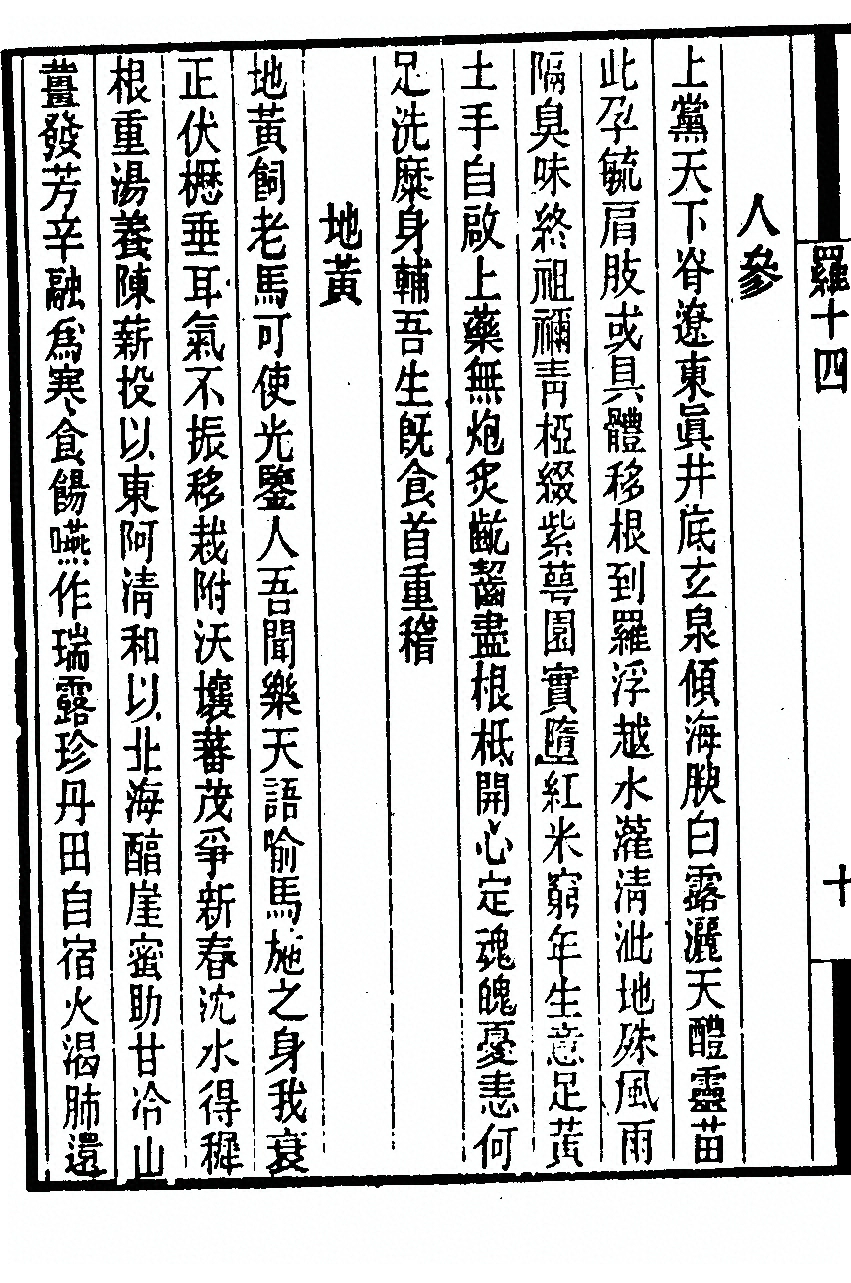 羅十四
十
人參
上黨天下脊遼東眞井底玄泉傾海腴白露灑天醴靈苗
此孕毓肩肢或具體移根到羅浮越水灌清泚地殊風雨
隔臭味終祖禰青椏綴紫萼圓實墮紅米窮年生意足黃
土手自啟上藥無炮炙齕齧盡根柢開心定魂魄憂恚何
足洗糜身輔吾生旣食首重稽
地黃
地黃飼老馬可使光鑒人吾聞樂天語喻馬施之身我衰
正伏櫪垂耳氣不振移栽附沃壤蕃茂爭新春沈水得穉
根重湯養陳薪投以東阿清和以北海醅崖蜜助甘冷山
薑發芳辛融爲寒食餳嚥作瑞露珍丹田自宿火渴肺還